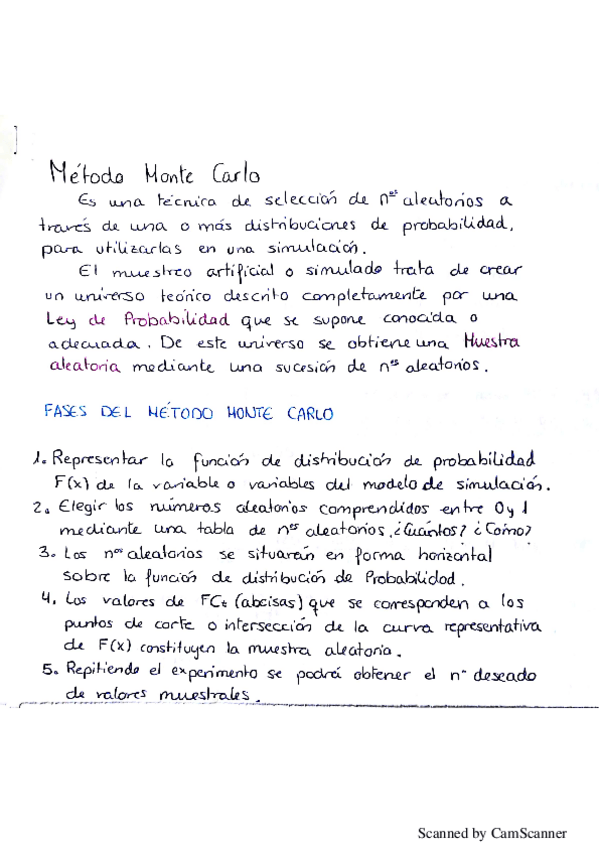 Método Monte Carlo
Es una técnica de selección de nºs aleatorios a
través de una o más distribuciones de probabilidad,
para utilizarlas en una simulación.
El muestreo artificial o simulado trata de crear
un universo teórico descrito completamente por una
Ley de Probabilidad que se supone conocida o
adecuada. De este universo se obtiene una Muestra
aleatoria mediante una sucesión de nºs aleatorios.
FASES DEL MÉTODO MONTE CARLO
1. Representar la función de distribución de probabilidad
F(x) de la variable o variables del modelo de simulación.
2. Elegir los números aleatorios comprendidos entre 0 y 1
mediante una tabla de nºs aleatorios. ¿Cuántos? ¿Cómo?
3. Los nºs aleatorios se situarán en forma horizontal
sobre la función de distribución de Probabilidad.
4. Los valores de FCt (abcisas) que se corresponden a los
puntos de corte o intersección de la curva representativa
de F(x) constituyen la muestra aleatoria.
5. Repitiendo el experimento se podrá obtener el nº deseado
de valores muestrales.
Scanned by CamScanner